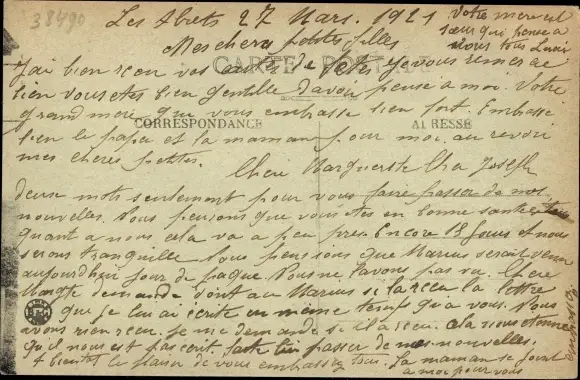 38490
Les Abrets 27 Mars. 1921
Mes chères petites filles
CARTE POSTALE
J'ai bien reçu vos cartes de fêtes, je vous remercie
bien vous êtes bien gentille d'avoir pensé a moi. Votre
grand mère qui vous embrasse bien fort. Embrasse
CORRESPONDANCE
ADRESSE
bien le papa et la maman pour moi. au revoir
mes chères petites.
Chere Marguerite Cher Joseph
deux mots seulement pour vous faire passer de nos
nouvelles. Nous pensons que vous êtes en bonne santé
quant a nous cela va a peu pres. Encore 13 Jours et nous
serons tranquille. Nous pensions que Marius serait venu
aujourd'hui jour de paque. Nous ne l'avons pas vu. Chere
demande dont au Marius si la reçu la lettre
que je lui ai écrite en même temps qu'a vous. Nous
avons rien reçu. je me demande si il a reçu. Cela nous étonne
qu'il nous est pas écrit. faite lui passer de nos nouvelles.
A bientôt le plaisir de vous embrasser tous. La maman se joint
a moi pour vous
embrasser
Votre
sœur qui pense a
vous tous